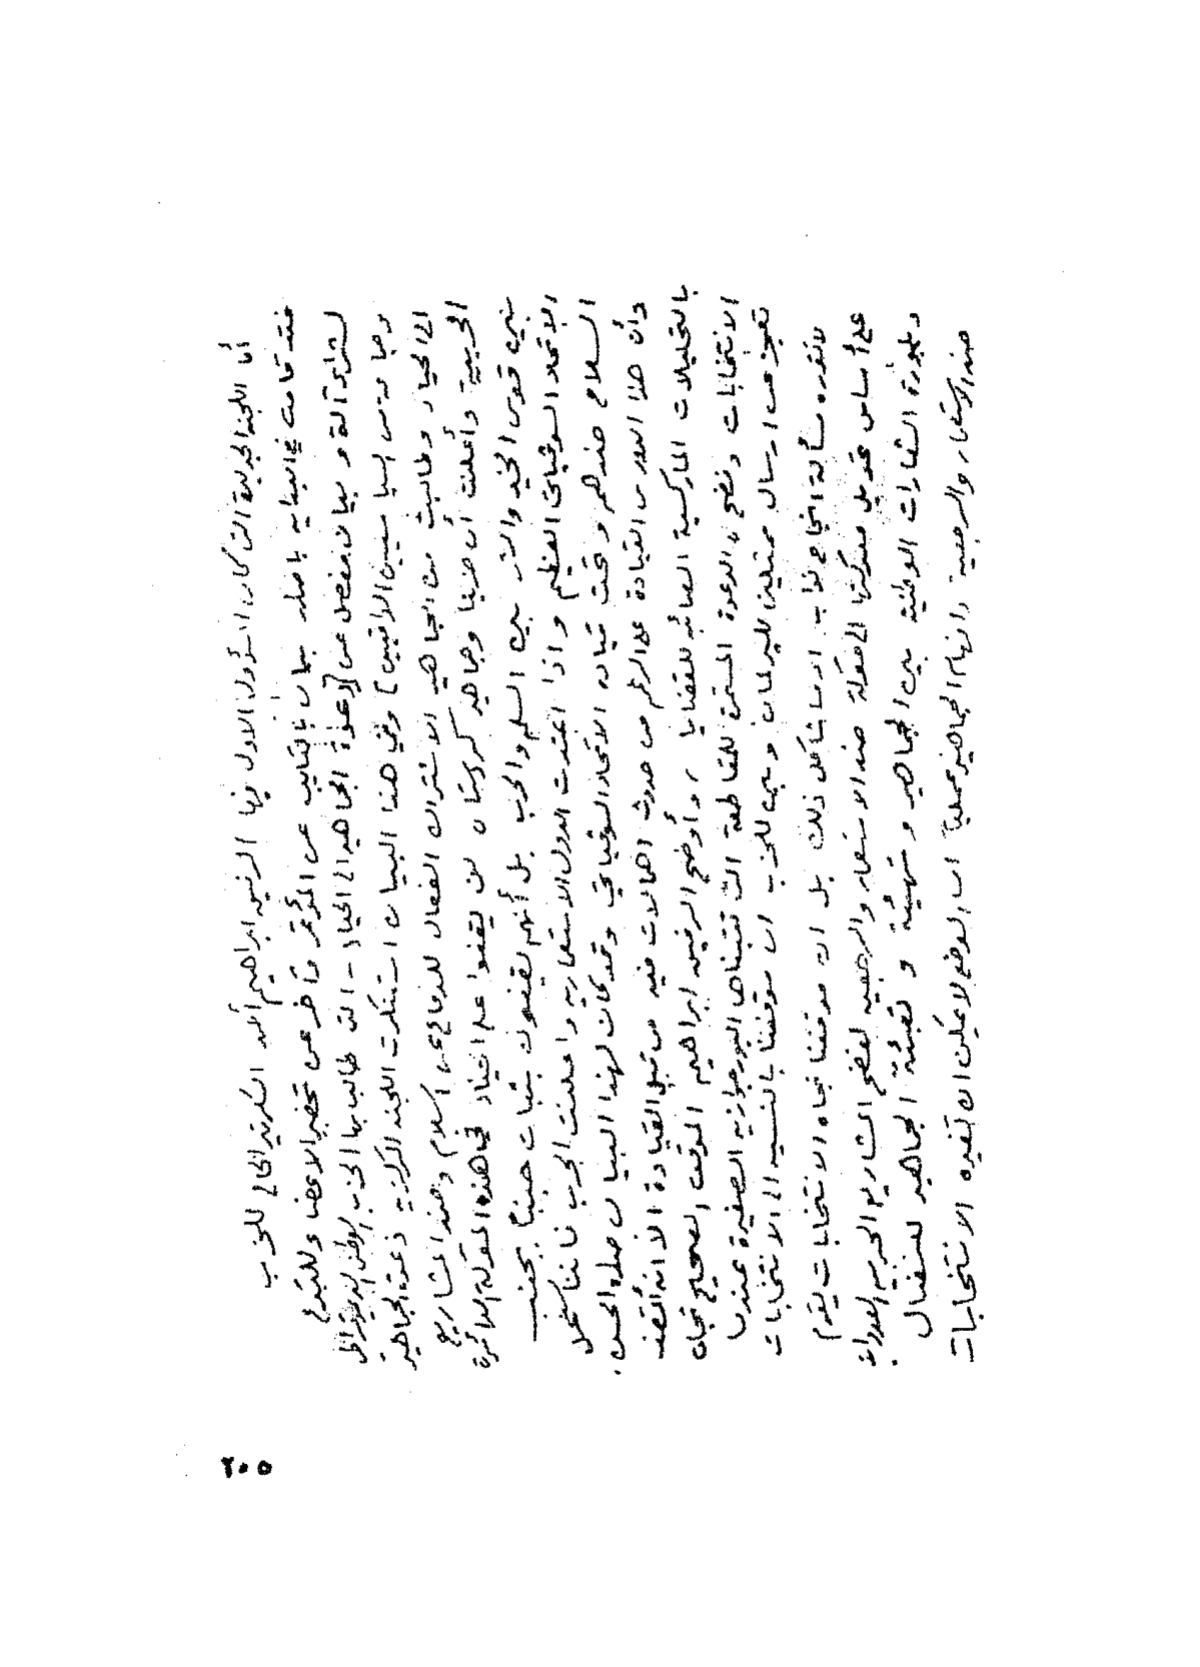 أما اللجنة الجديدة التي كان المسؤول الاول فيها الرفيق ابراهيم أحمد السكرتير الحالي للحزب
فقد قامت في البداية باصدار بيان بالتايب عن المؤتمر وآخر عن تحضير الاعضاء وللتبرع
لشراء آلة و بيان مفصل عن (دعوة الجماهير الى الحياد - التي طالب بها الحزب الوطني الديمقراطي
وجماعة من السياسيين اللاقيين) وفي هذا البيان استنكرت اللجنة المركزية دعوة الجماهير
الى الحياد وطالبت من الجماهير الاشتراك الفعال للدفاع عن السلام وضد المشاريع
الحربية وأعلنت أن حزبنا وجماهير كردستان لن يقفوا على الحياد في هذه المعركة الدائرة
بين قوى الخير والشر بين السلم والحرب بل أنهم ليقفون بثبات جنباً بجنب
الاتحاد السوفياتي العظيم و اذا اعتدت الدول الاستعمارية واعلنت الحرب فاننا سنحمل
السلاح ضدهم وتحت قيادة الاتحاد السوفياتي وقد كان لهذا البيان صداه الحسن .
وأن هذا الدور من القيادة على الرغم من حدوث اهمالات فيه من قبل القيادة الا انه أتصف
بالتحليلات الماركسية الصائبة للقضايا ، وأوضح الرفيق ابراهيم الموقف الصحيح تجاه
الانتخابات وفضح الدعوة المستمرة للمقاطعة التي تتبناها البورجوازية الصغيرة عندما
تعجز عن ارسال ممثلين للبرلمان وبين للحزب ان موقفنا بالنسبة الى الانتخابات
لا تقرره مسألة انجاح نواب او ما شاكل ذلك بل ان موقفنا تجاه الانتخابات يقوم
على أساس تحويل معركتها الى معركة ضد الاستعمار والرجعية لفضح المشاريع الحربية العدوانية
وبلورة الشعارات الوطنية بين الجماهير وتهيئة و تعبئة الجماهير للنضال
ضد الاستعمار والرجعية وافهام الجماهير عملياً ان الوضع لا يمكن ان تغيره الانتخابات
٢٠٥